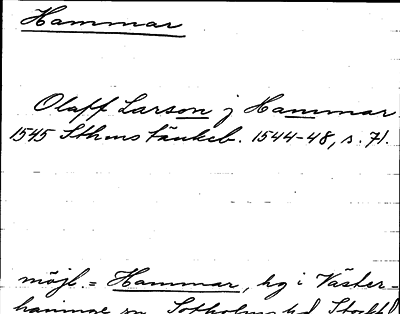 Hammar
Olaff Larson j Hammar
1545 Sthms tänkeb. 1544-48, s. 71.
möjl. = Hammar, hg i Väster-
haninge sn, Sotholms hd, Stockhl